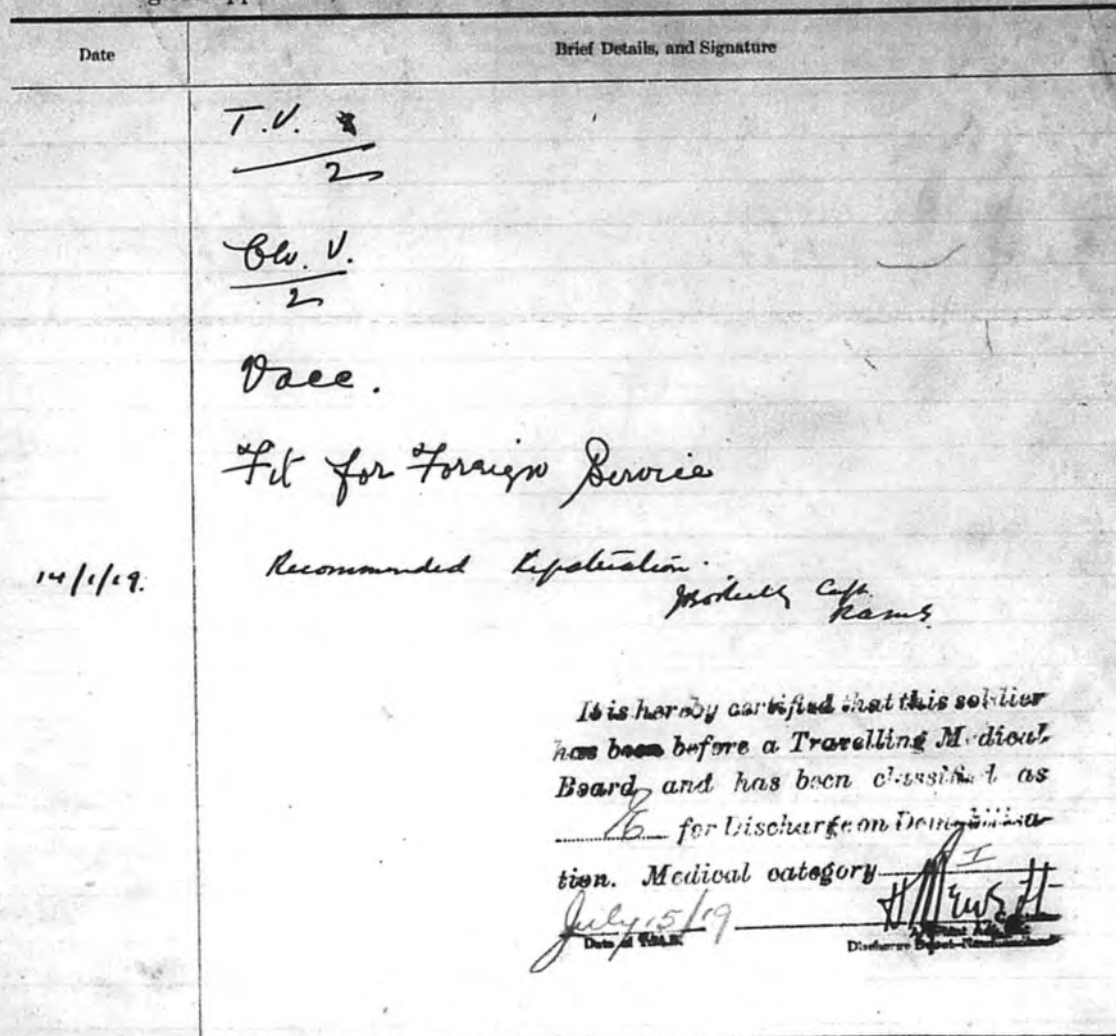 Date Brief Details, and Signature
T.V.
2
V.
2
Vacc.
Fit for Foreign Service
14/1/19. Recommended Repatriation.
Capt.
RAMC
It is hereby certified that this soldier
has been before a Travelling Medical
Board, and has been classified as
E for Discharge on Demobiliza-
tion. Medical category I
July 15/19
Date of T.M.B. Discharge Depot-Newfoundland